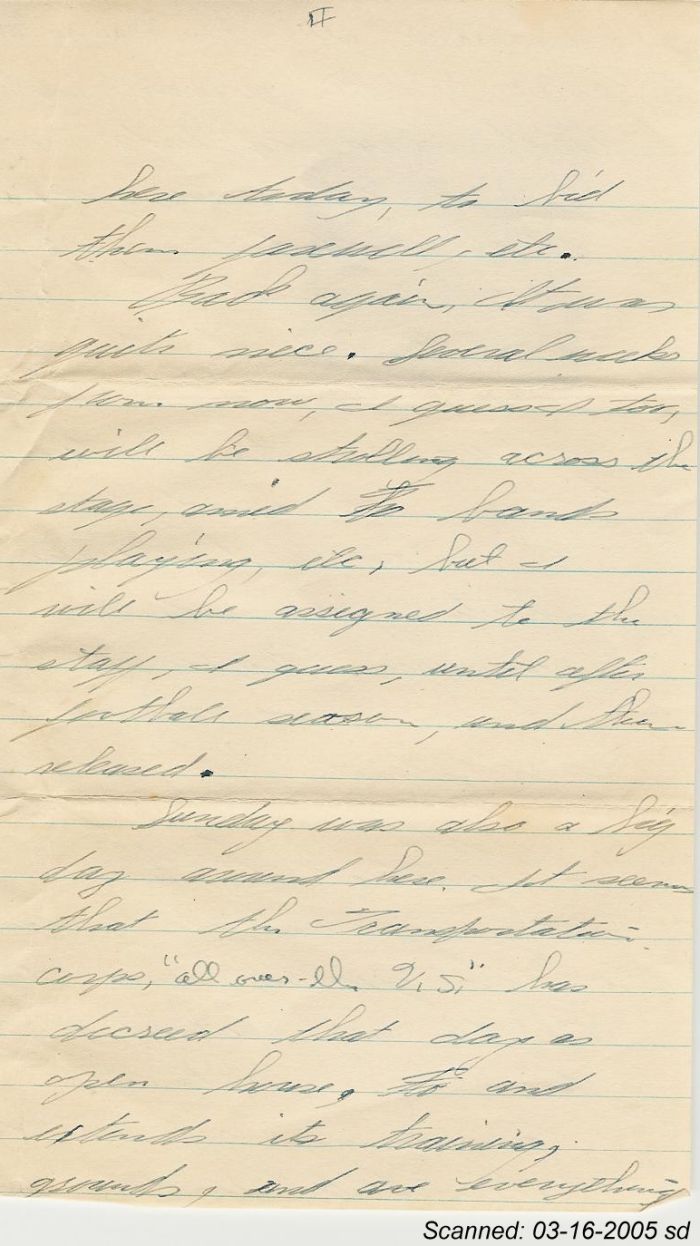 II
here today, to bid
them farewell, etc.
Back again, It was
quite nice. Several weeks
from now, I guess I too,
will be strolling across the
stage, amid the bands
playing, etc, but I
will be assigned to the
staff, I guess, until after
football season, and then
released.
Sunday was also a big
day around here. It seems
that the Transportation
corps, "all over-the U.S." has
decreed that day as
open house, to and
extends its training,
grounds, and are everything
Scanned: 03-16-2005 sd